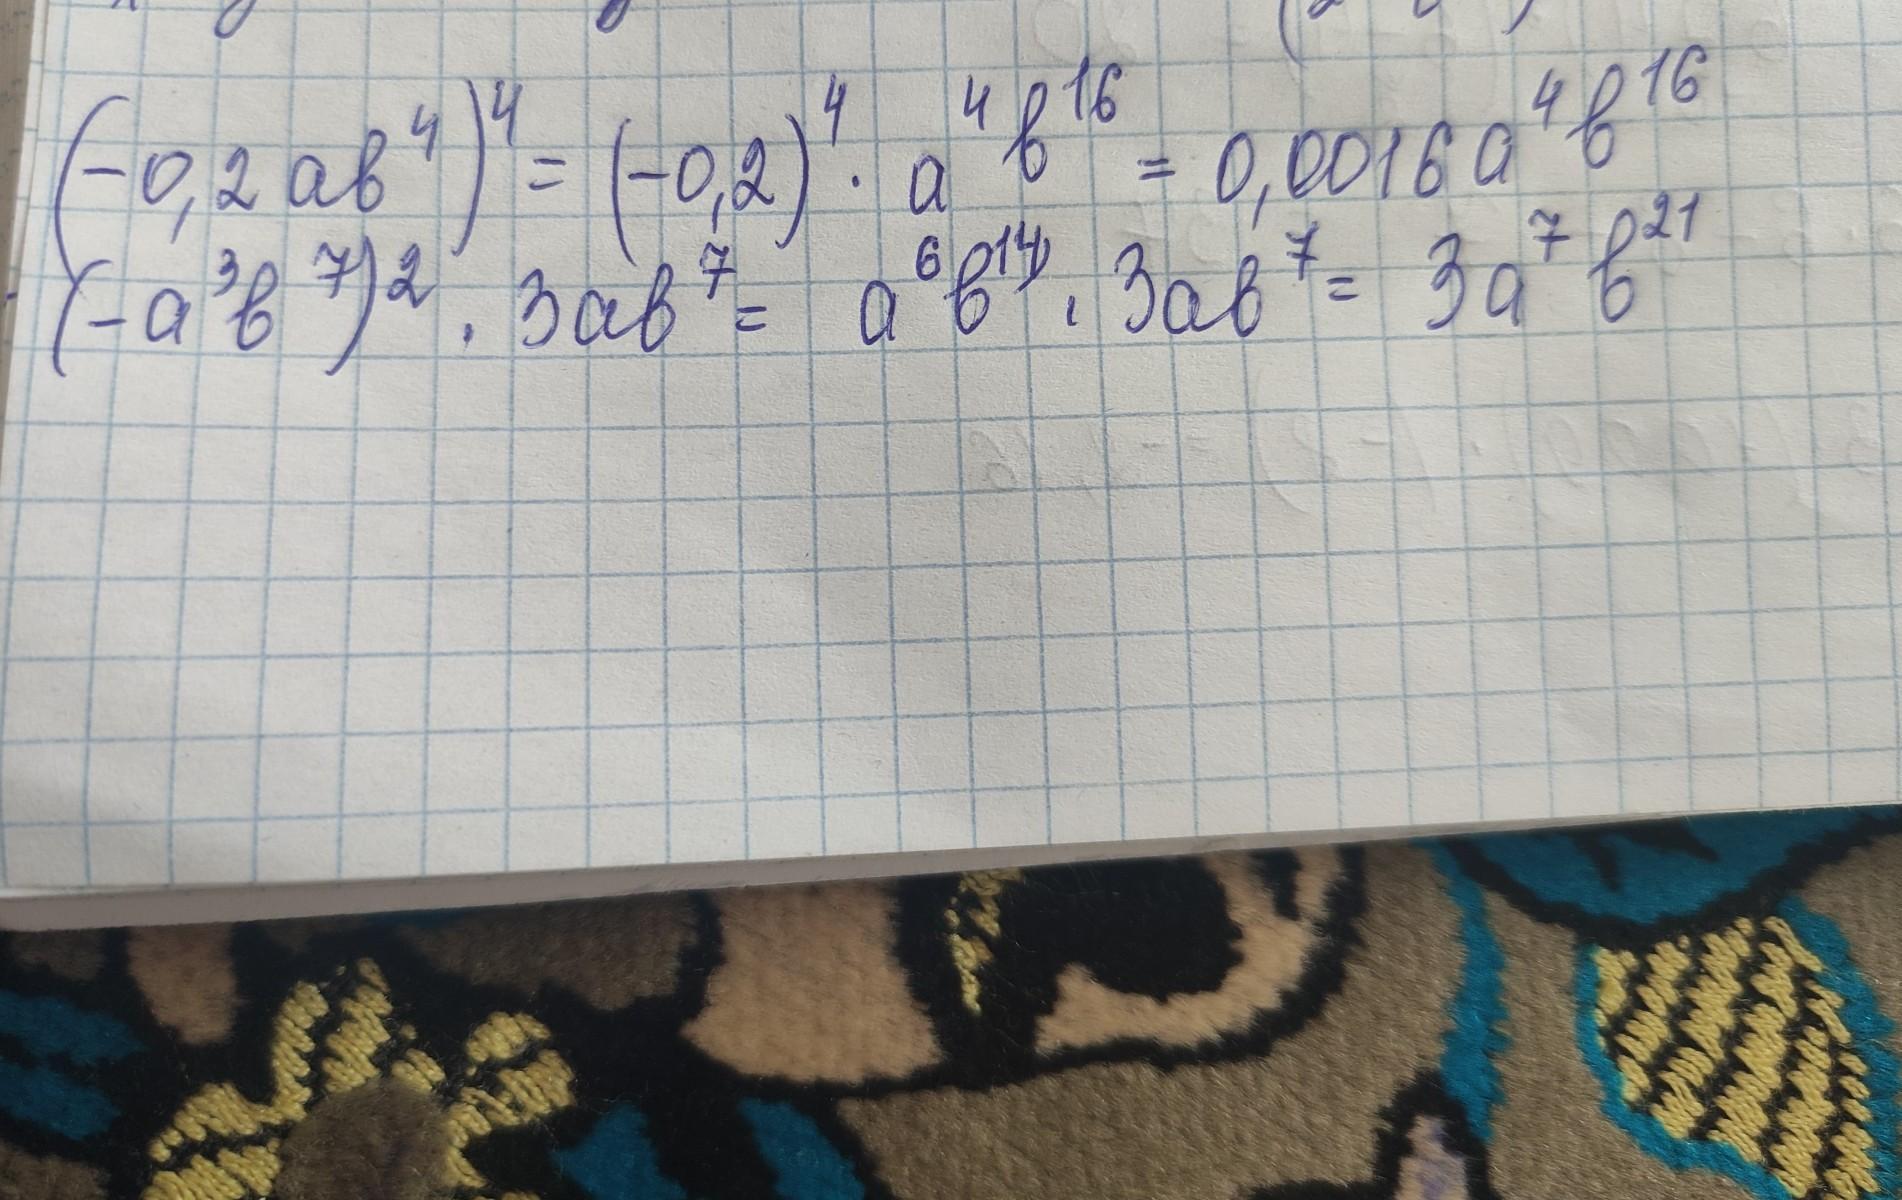 (-0,2ab⁴)⁴ = (-0,2)⁴ · a⁴b¹⁶ = 0,0016a⁴b¹⁶
(-a³b⁷)² · 3ab⁷ = a⁶b¹⁴ · 3ab⁷ = 3a⁷b²¹